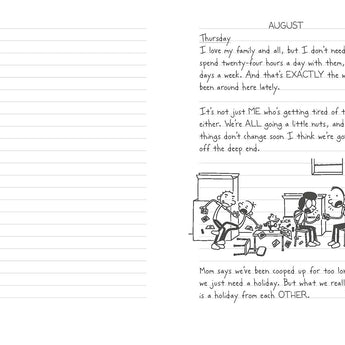 AUGUST
Thursday
I love my family and all, but I don't need
spend twenty-four hours a day with them,
days a week. And that's EXACTLY the w
been around here lately.
It's not just ME who's getting tired of t
either. We're ALL going a little nuts, and
things don't change soon I think we're go
off the deep end.
Mom says we've been cooped up for too lon
we just need a holiday. But what we reall
is a holiday from each OTHER.